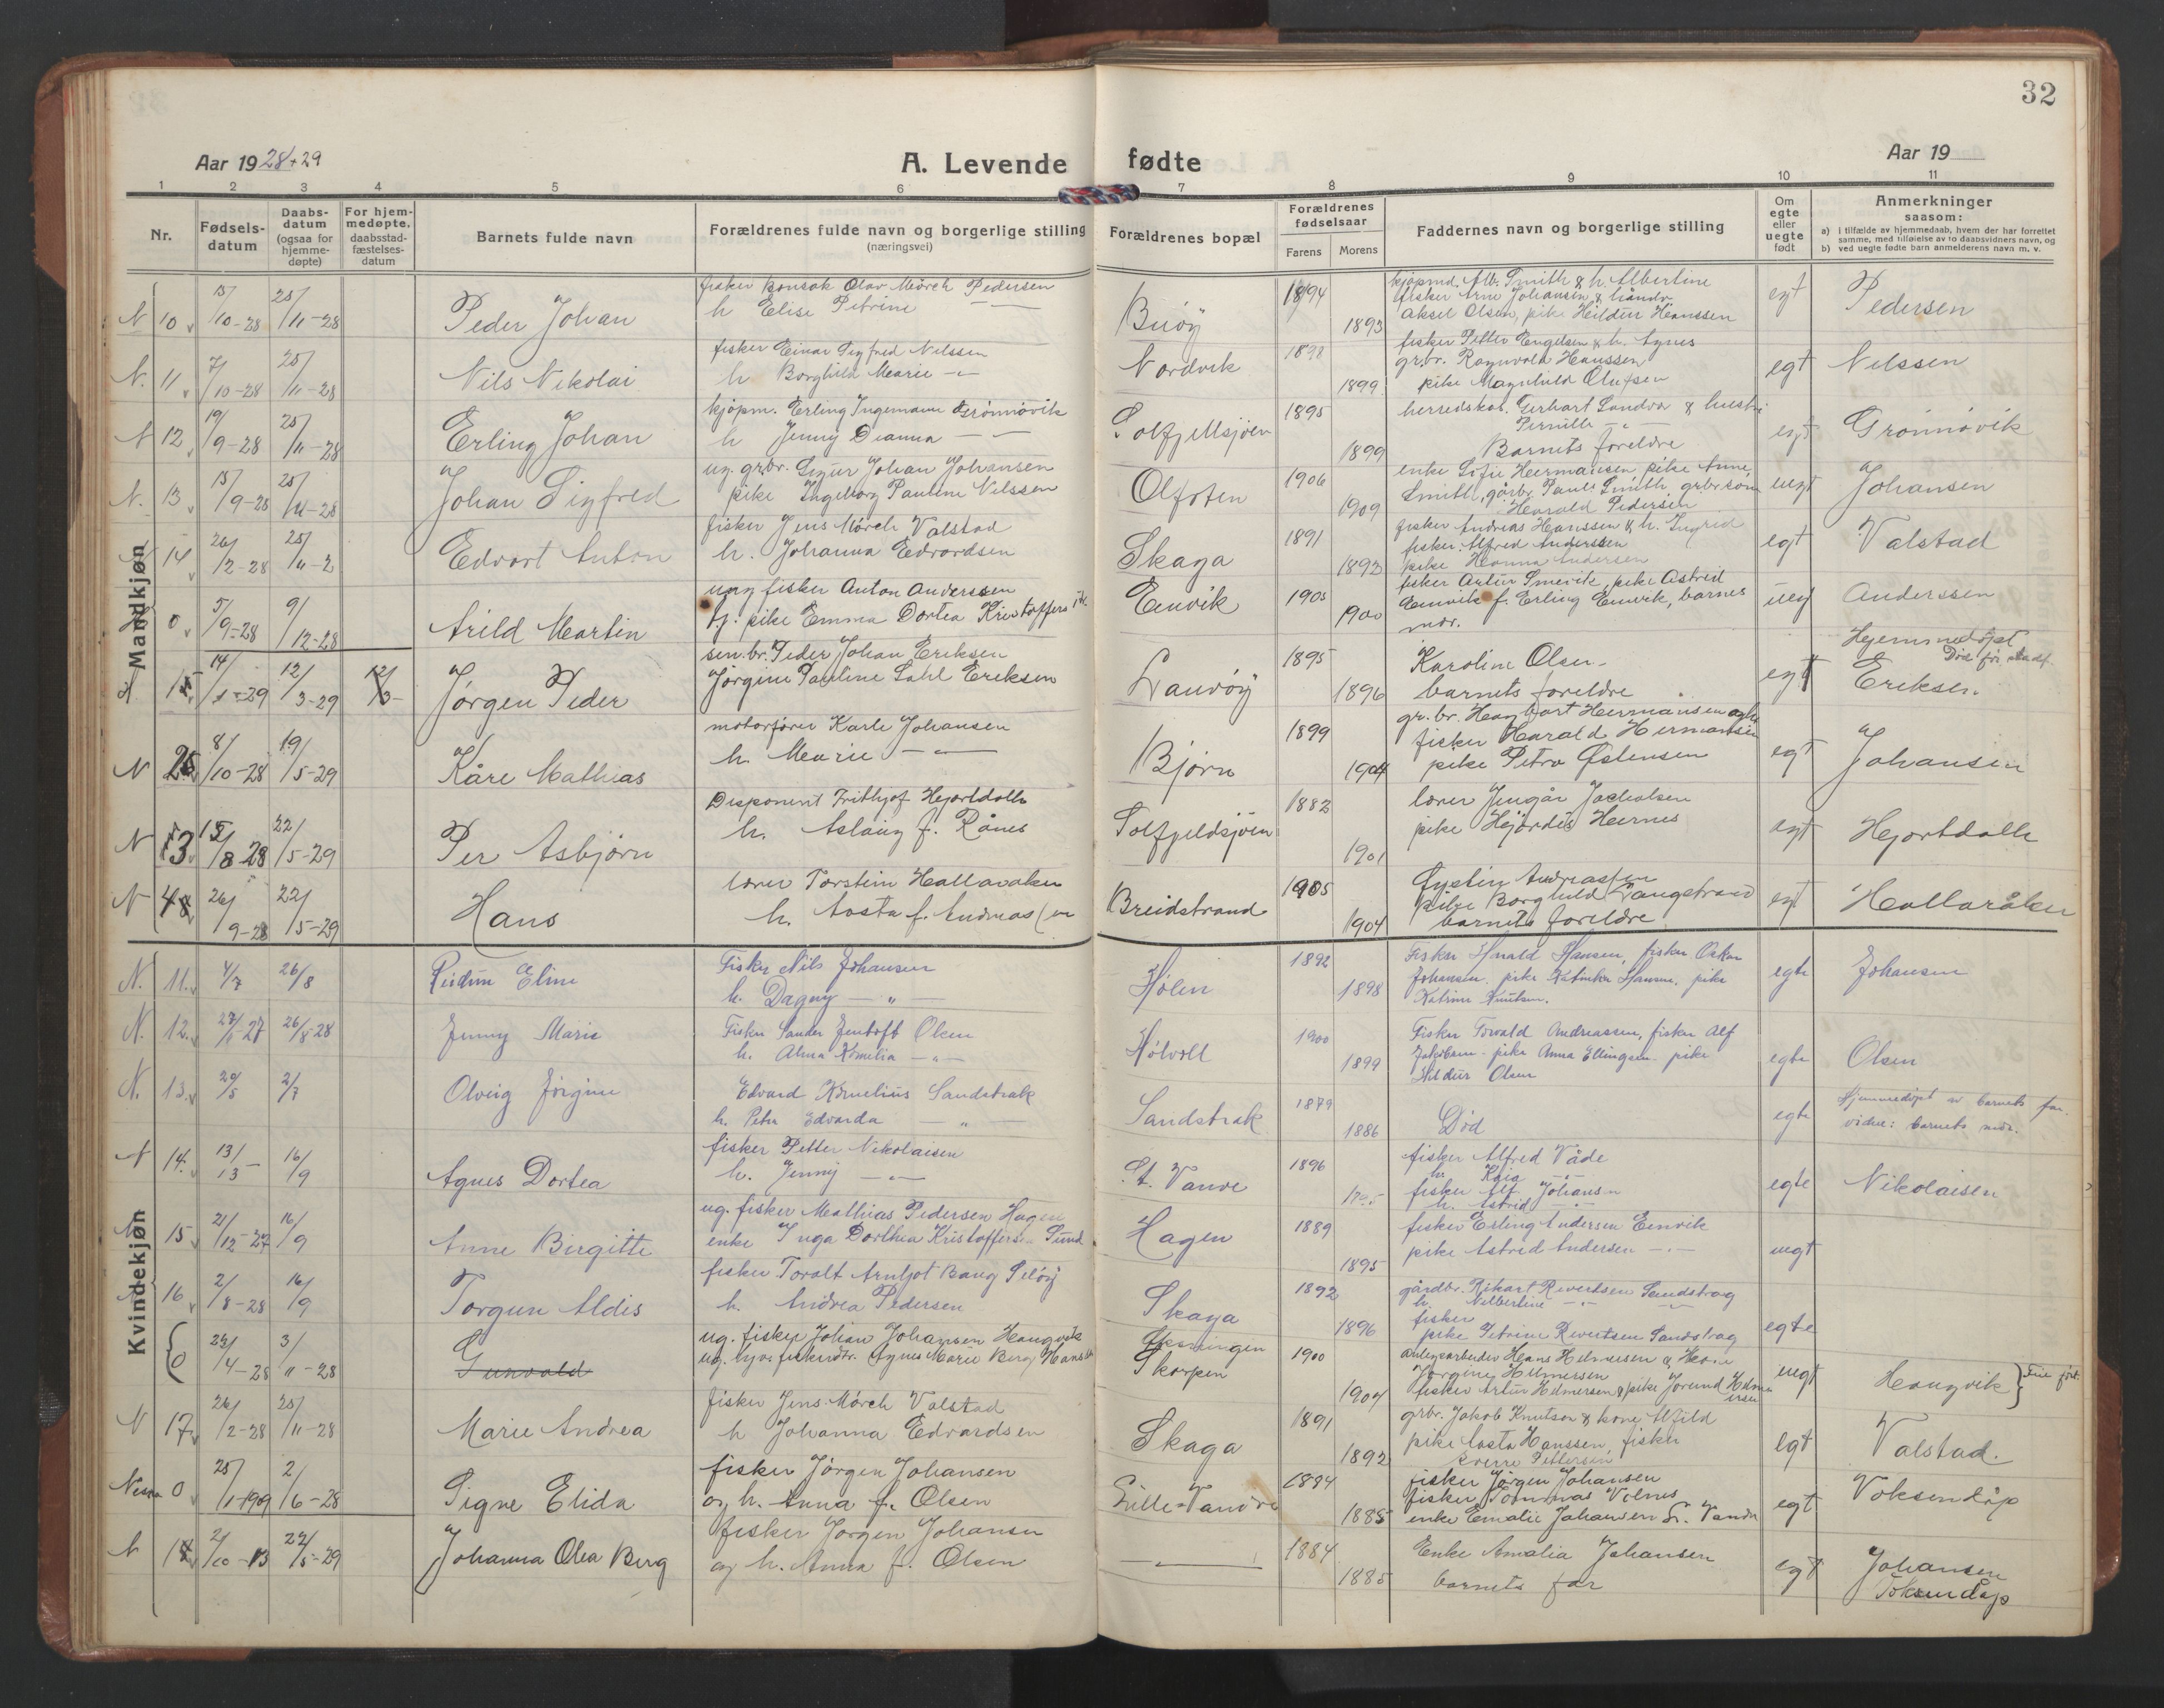 32
Aar 19 28+29
A. Levende fødte
Aar 19
1 2 3 4 5 6 7 8 9 10 11
Nr.
Fødsels-datum
Daabs-datum (ogsaa for hjemme-døpte)
For hjem-medøpte, daabsstad-fæstelses-datum
Barnets fulde navn
Forældrenes fulde navn og borgerlige stilling (næringsvei)
Forældrenes bopæl
Forældrenes fødselsaar
Farens Morens
Faddernes navn og borgerlige stilling
Om egte eller uegte født
Anmerkninger saasom:
a) I tilfælde av hjemmedaab, hvem der har forrettet samme, med tilføielse av to daabsvidners navn, og
b) ved uegte fødte barn anmelderens navn m. v.
Mandkjøn
N 10 15/10-28 25/11-28 Peder Johan
fisker Bonsak Olav Mörch Pedersen
h Elise Petrine
Buöy 1894 1893
kjøpmd. Alb. Smith & h. Albertine
fisker Arne Johansen & håndv.
Aksel Olsen, pike Heildur Hanssen
egt Pedersen
N. 11 7/10-28 25/11-28 Nils Nikolai
fisker Einar Sigfred Nilssen
h Borghild Marie
Nordvik 1898 1899
fisker Petter Engelsen & h. Agnes
grbr. Ragnvald Hanssen
pike Magnhild Olufsen
egt Nilssen
N 12 19/9-28 25/11-28 Erling Johan
kjøpm. Erling Ingemann Grönnövik
h Jenny Deanna
Solfjellsjöen 1895 1899
herredskas. Gerhart Sandva & hustru
Pernille
Barnets foreldre
egt Grönnövik
N. 13 15/9-28 25/11-28 Johan Sigfred
ug. grbr. Sigur Johan Johansen
pike Ingeborg Pauline Nilssen
Olfoten 1906 1909
enke Sofie Hermansen, pike Anne
Smith, gårbr. Paul Smith, grbr.
Harald Pedersen
uegt Johansen
14 26/2-28 25/11-2 Edvart Anton
fisker Jens Mörch Valstad
h. Johanna Edvardsen
Skaga 1891 1892
fisker Andreas Hanssen & h. Ingrid
fisker Alfred Anderssen
pike Hanna Andersen
egt Valstad
0 5/9-28 9/12-28 Arild Martin
ung fisker Anton Anderssen
pike Emma Dortea Kristoffers
Emvik 1905 1900
fisker Artur Smevik, pike Astrid
Emvik f. Erling Emvik, barnets
mor.
uegt Anderssen
14/1-29 12/3-29 Jörgen Peder
Peder Johan Eriksen
Jörgine Pauline Dahl Eriksen
Lauvöy 1895 1896
Karoline Olsen
barnets foreldre
egt Hjemmedöpt
Eriksen.
N 8/10-28 19/5-29 Kåre Mathias
motorförer Karle Johansen
h. Marie
Björn 1899 1904
gr. br. Hagbart Hermansen
fisker Harald Hermansen
pike Petra Östensen
egt Johansen
N 22/5-29 Per Asbjörn
Disponent Frithjof Hjortdahl
h. Aslaug f. Rånes
Solfjeldsjöen 1882 1901
lærer Jacholsen
pike Hjördis Hernes
egt Hjortdahl
N 26/9-28 22/5-29 Hans
lærer Torstein Hallaråker
h. Aasta f. Andreassen
Breidstrand 1905 1904
Öystin Andreassen
pike Borghild Langstrand
barnets foreldre
egt Hallaråker
Kvindekjøn
N. 11. 4/7 26/8 Reidun Eline
Fisker Nils Johansen
h. Dagny — " —
Hölen 1892 1898
Fisker Harald Hansen, fisker Oskar
Johansen, pike Katinka Hansen, pike
Katrine Knutsen.
egte Johansen
N. 12. 26/8 28 Jenny Marie
Fisker Sander Zentoft Olsen
h. Alma Kornelia — " —
Hölvoll 1900 1899
Fisker Torvald Andreassen, fisker Alf
Jakobsen. pike Anna Ellingsen. pike
Hildur Olsen
egte Olsen
N. 13. 29/5 2/7 Olveig Jörgine
Edvard Kornelius Sandstrak
h. Petra Edvarda — " —
Sandstrak 1879 1886
Död
egte Hjemmedöpt av barnets far.
vidne: barnets mor.
N 14. 13/13 - 16/9 Agnes Dortea
fisker Petter Nikolaisen
h. Jenny
St. Vande 1896
fisker Alfred Våde
h. Kaia
fisker Alf Johansen
h. Astrid
egte Nikolaisen
15 21/12-27 16/9 Anne Birgitte
ug. fisker Mathias Pedersen Hagen
enke Inga Dorthea Kristoffers. Sund
Hagen 1889 1895
fisker Erling Andersen Emvik
pike Astrid Andersen
uegt
16 2/8-28 16/9 Torgun Aldis
fisker Toralf Arnljot Bang Selöy
h. Andrea Pedersen
Skaga 1892 1896
gårdbr. Rikart Revertsen Sandstrag
h. Nilbertine
fisker
pike Petrine Revertsen Sandstrag
egte
0 22/4-28 3/11-28 Gunvald
ug. fisker Johan Johansen Haugvik
Agnes Marie Berg Hansen
Skorpen 1900 1904
anlegsarbeider Hans Helmersen & Kone
Jörgine Hilmersen
fisker Artur Helmersen & pike Jorund Helmersen
uegt Haugvik
N 17 26/2-28 25/11-28 Marie Andrea
fisker Jens Mörch Valstad
h Johanna Edvardsen
Skaga 1891 1892
grbr. Jakob Knutsen & kone Alfild
pike Aasta Hanssen, fisker
Sverre Pettersen
egt Valstad.
Nesna 0 25/1-1909 2/6-28 Signe Elida
fisker Jörgen Johansen
og h. Anna f. Olsen
Lille-Vandve 1884 1885
fisker Jörgen Johansen
fisker Tommas Vilnes
enke Emalie Johansen L. Vandve
egt Voksendåp
N 2/10-13 22/5-29 Johanna Olea Berg
fisker Jörgen Johansen
og h. Anna f. Olsen
— " — 1884 1885
Enke Amalia Johansen
barnets far
egt Johansen
Voksendåp